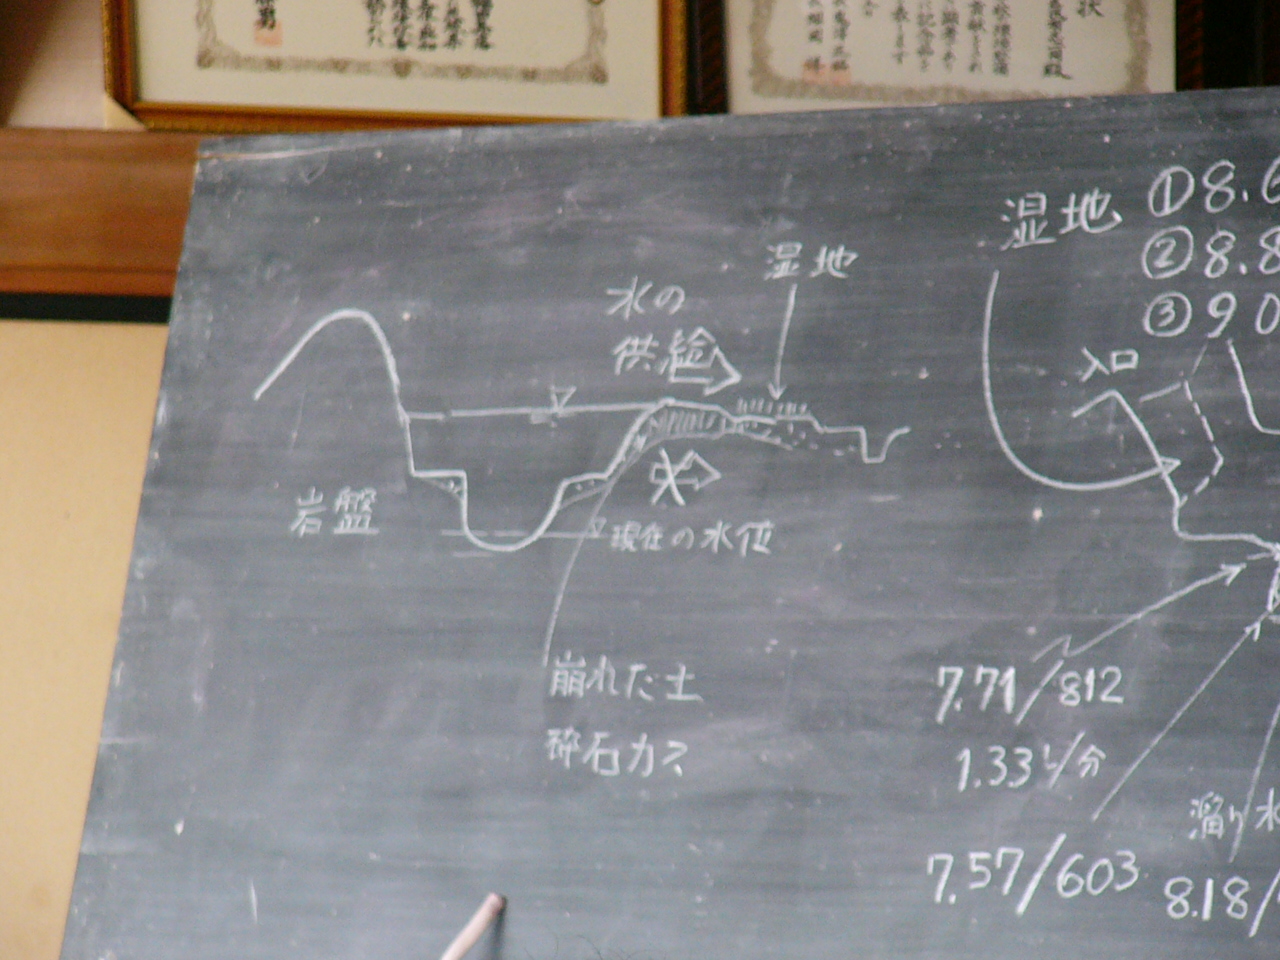 湿地
水の
供給
岩盤
現在の水位
崩れた土
砕石カス
湿地
①8.6
②8.8
③90
入口
7.71/812
1.33ℓ/分
7.57/603
溜り水
8.18/